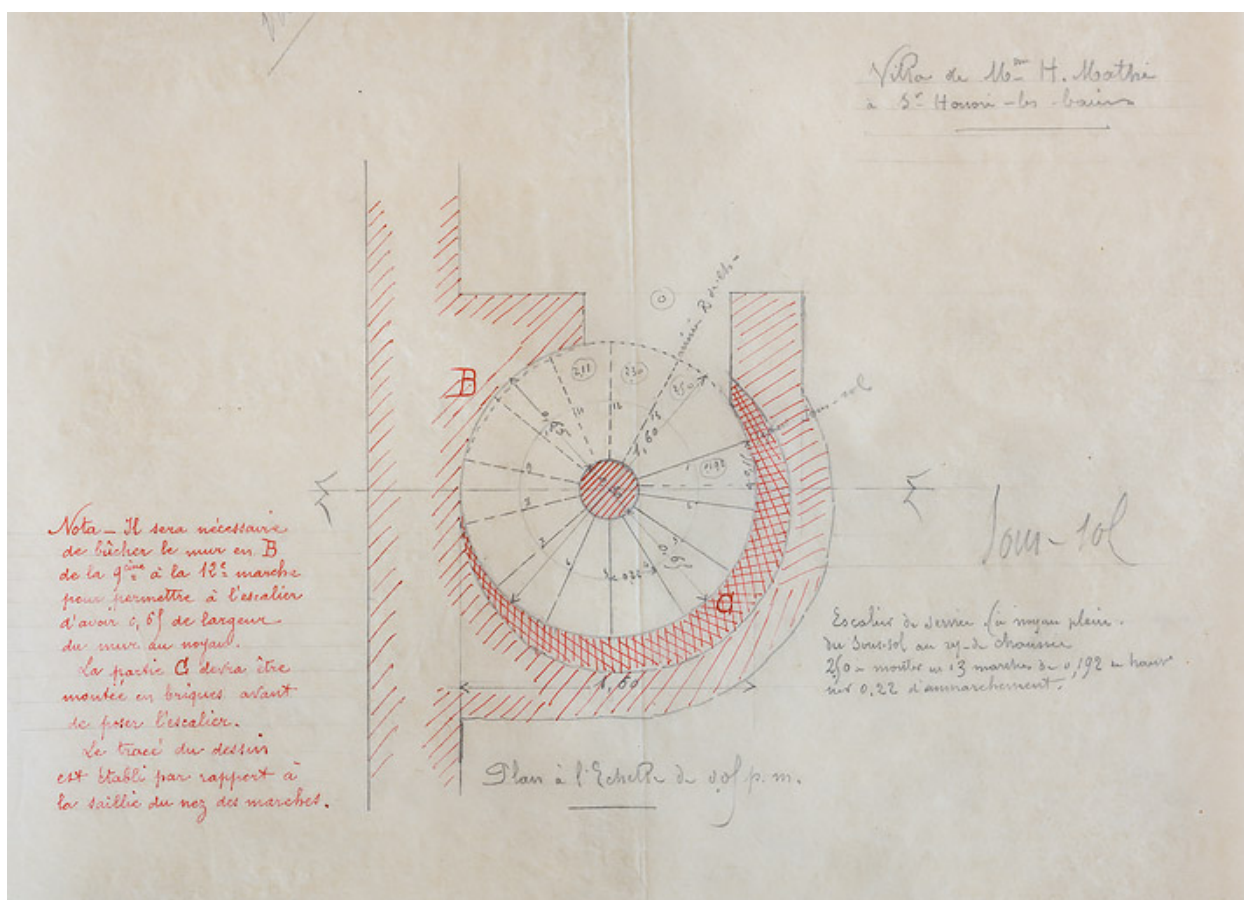 Villa de Mme H. Mathé
à St Honoré-les-bains
arrivée R. de ch.
0
2,11
2,30
2,50
B
11
12
13
0,65
1,60
sous-sol
0,192
1
2
9
8
7
6
5
3
0,65
0,220
C
1,60
Sous-sol
Nota - Il sera nécessaire
de bûcher le mur en B
de la 9ème à la 12e marche
pour permettre à l'escalier
d'avoir 0,65 de largeur
du mur au noyau.
La partie C devra être
montée en briques avant
de poser l'escalier.
Le tracé du dessin
est établi par rapport à
la saillie du nez des marches.
Escalier de service (à noyau plein.
du Sous-sol au rez-de chaussée
2,50 à monter en 13 marches de 0,192 de haut
0,22 d'emmarchement.
Plan à l'Echelle de 0,05 p. m.